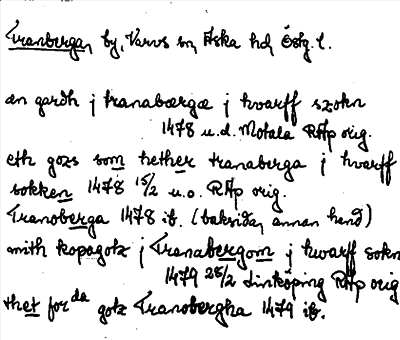 Tranberga, by, Varvs sn, Aska hd, Östg. l.
än gardh j tranabærgæ j hvarff szokn
1478 u.d. Motala RAp orig.
eth gozs som hether tranaberga j hvarff
sokken 1478 15/2 u.o. RAp orig.
Tranoberga 1478 ib. (baksidan, annan hand)
mith kopagotz j Tranabergom j hwarff sokn
1479 28/2 Linköping RAp orig
thet forda gotz Tranobergha 1479 ib.